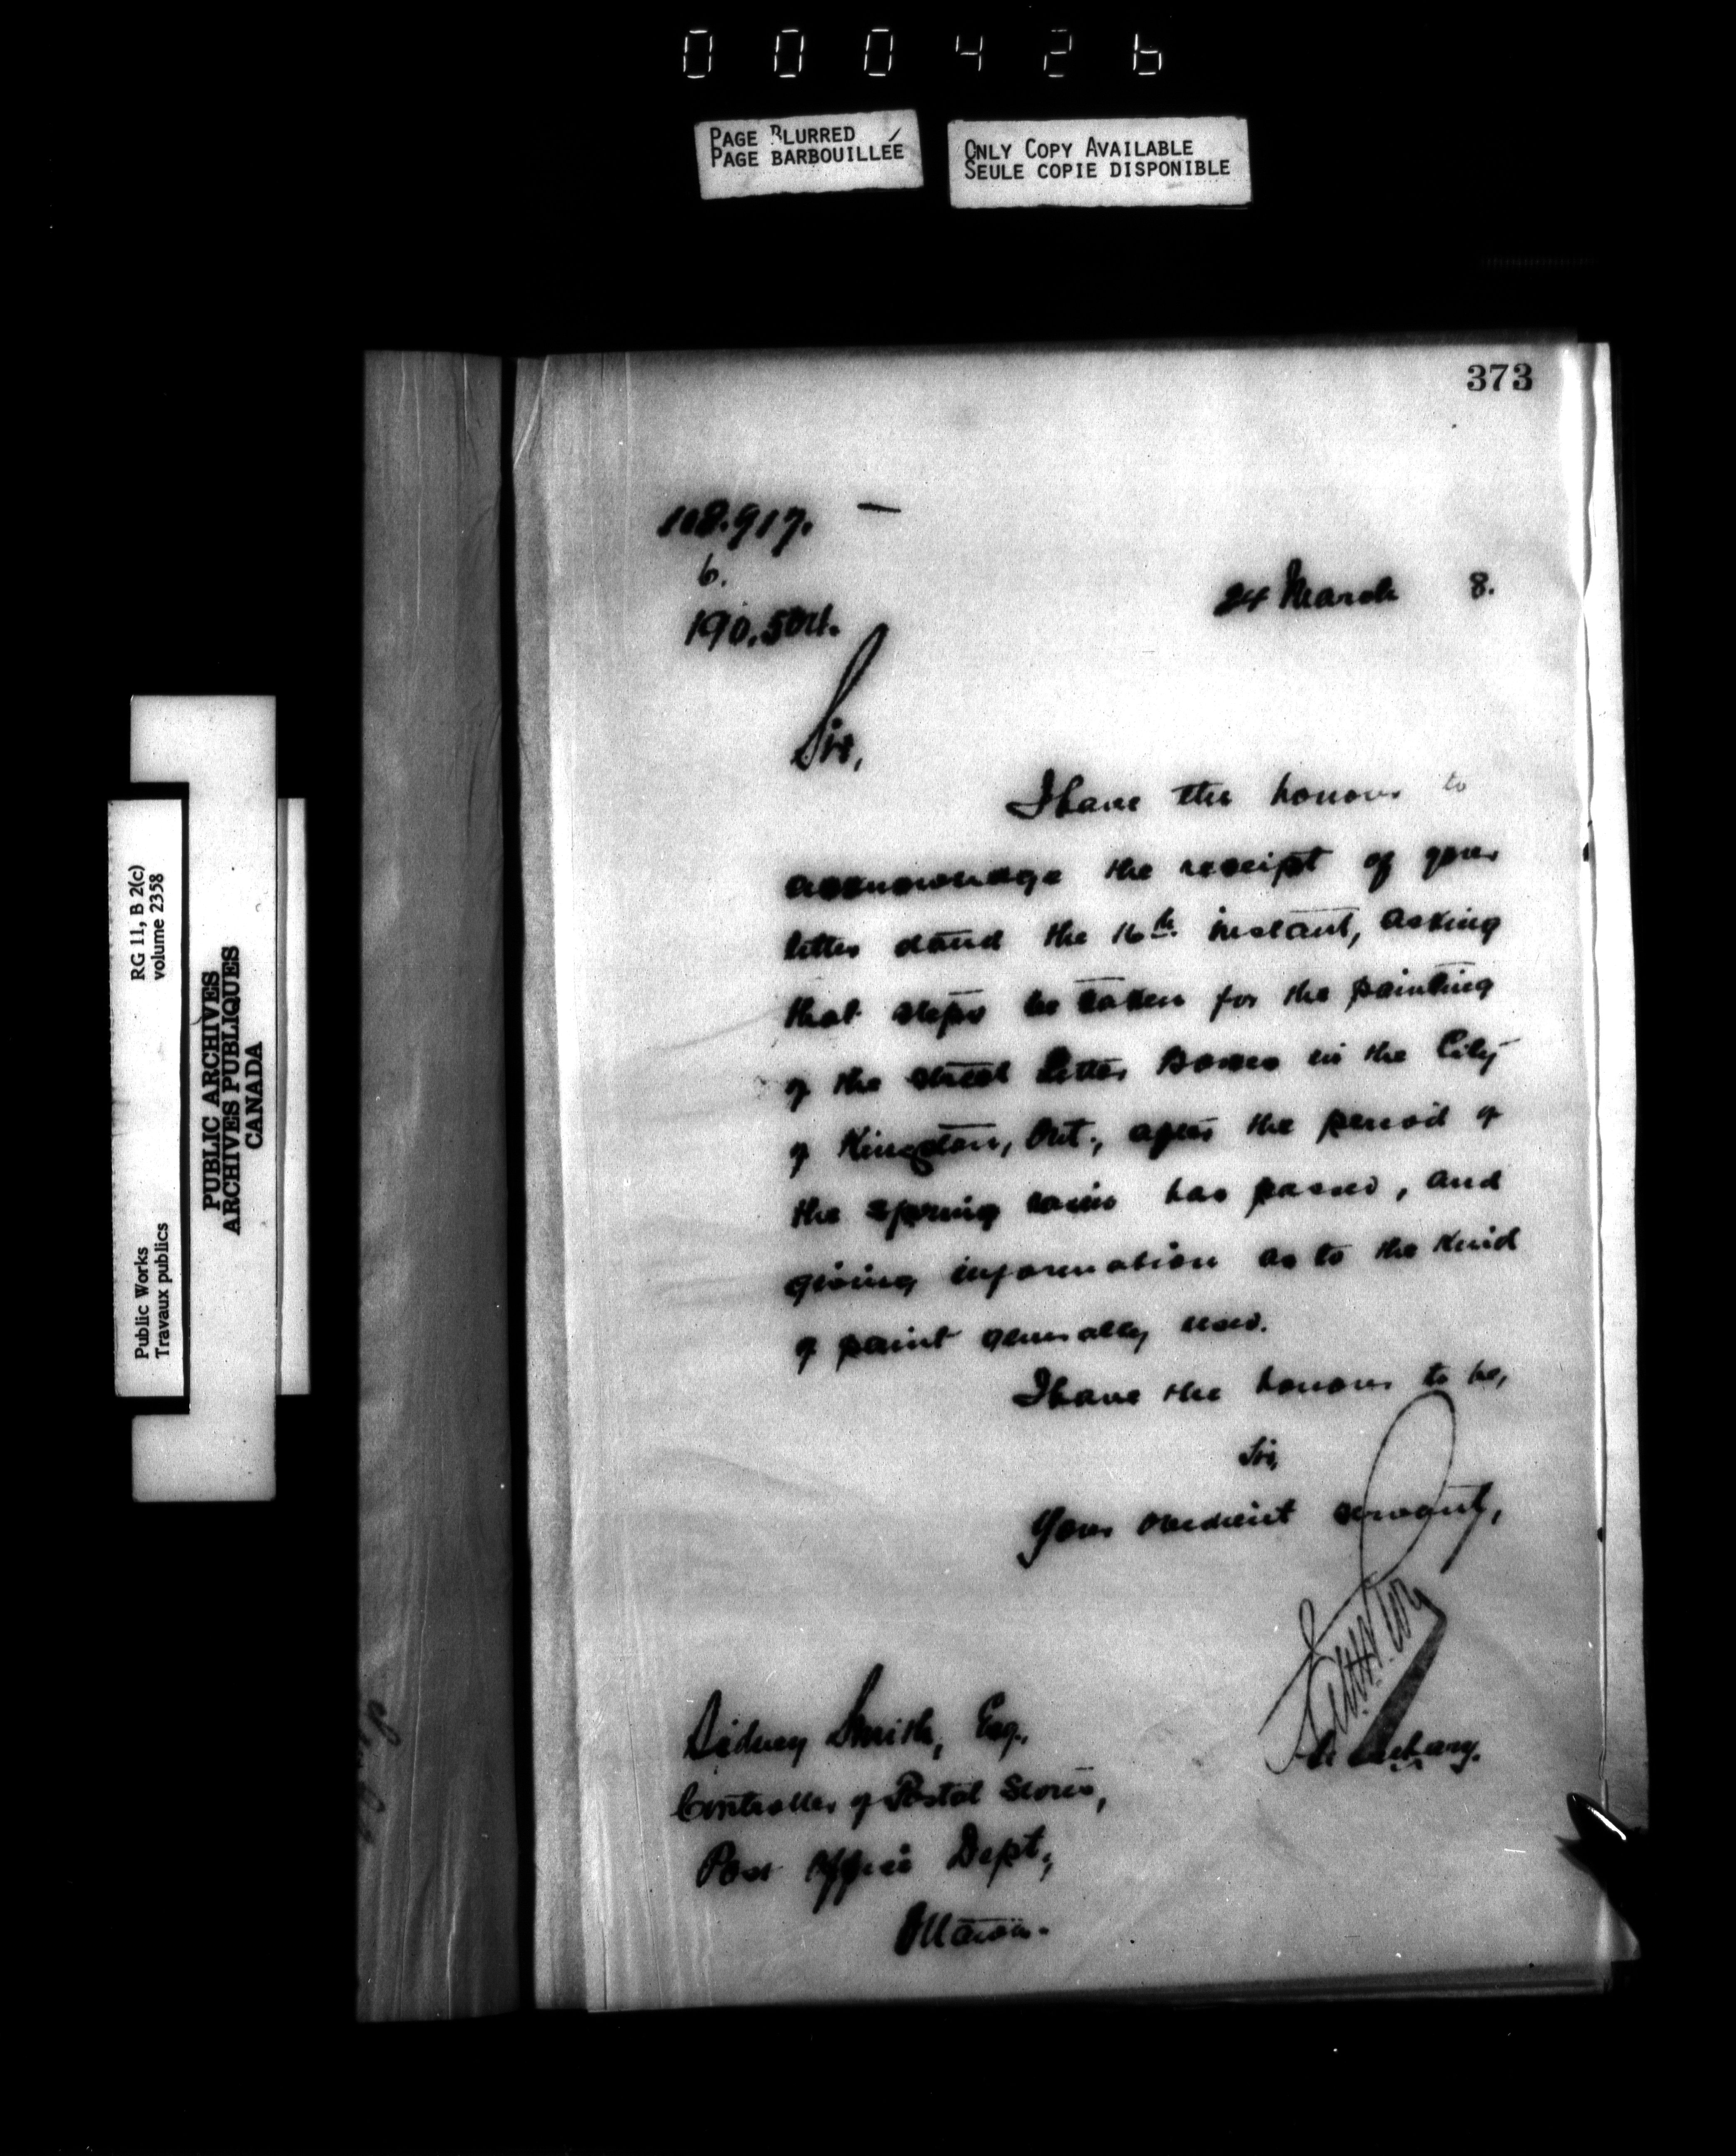 000426
PAGE BLURRED
PAGE BARBOUILLÉE
ONLY COPY AVAILABLE
SEULE COPIE DISPONIBLE
RG 11, B 2(c)
volume 2358
Public Works
Travaux publics
PUBLIC ARCHIVES
ARCHIVES PUBLIQUES
CANADA
373
108.917.
6.
24 March 8.
190.
Sir,
I have the honour to
acknowledge the receipt of your
letter dated the 16th instant, asking
that steps be taken for the painting
of the street Letter Boxes in the City
of Kingston, Ont., after the period of
the spring rains has passed, and
giving information as to the kind
of paint generally used.
I have the honour to be,
Sir,
Your obedient servant,
Secretary.
Sidney Smith, Esq.,
Controller of Postal Stores,
Post Office Dept.,
Ottawa.